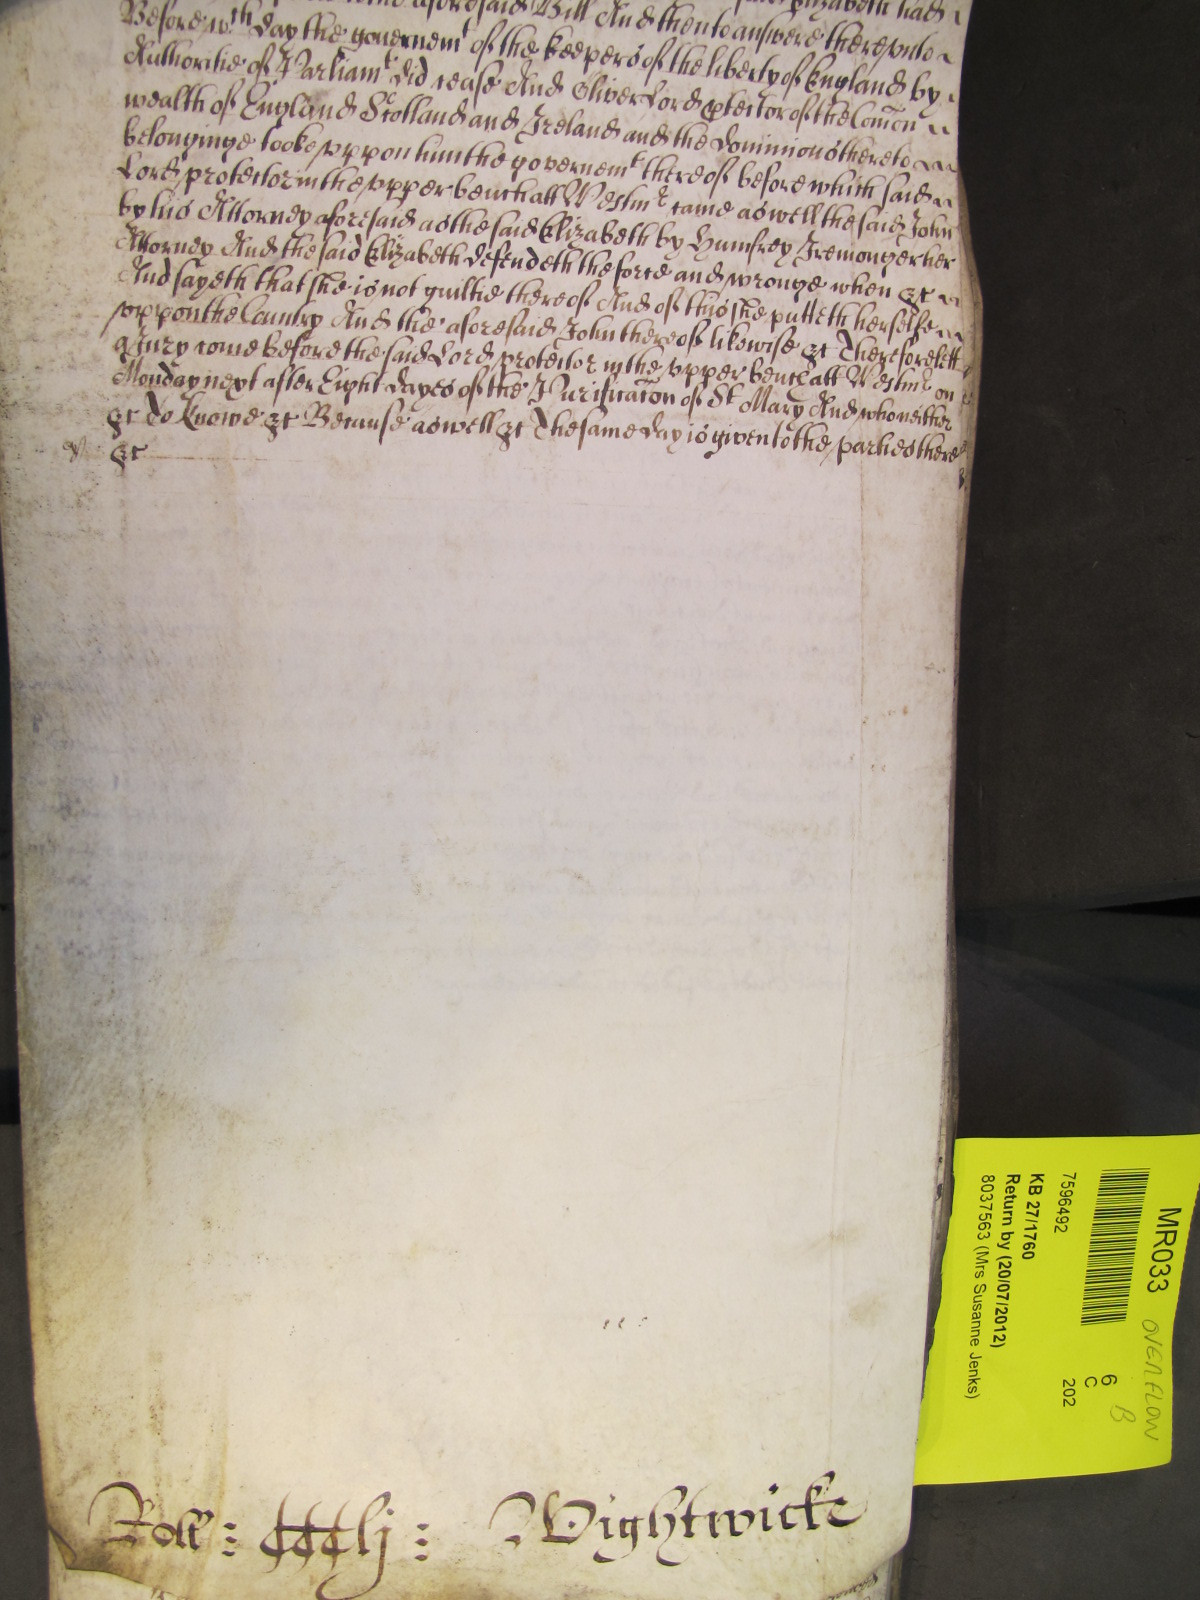 aforesaid Bill And then to answere therevnto
Before wch day the governemt of the keepers of the liberty of England by
Authoritie of Parliamt did cease And Oliver Lord ptector of the Comon
wealth of England Scotland and Ireland and the Dominions thereto
belonginge tooke vppon him the governemt thereof before which said
Lord protector in the vpper bench att Westmr came aswell the said John
by his Attorney aforesaid as the said Elizabeth by Humfrey Iremonger her
Attorney And the said Elizabeth defendeth the force and wronge when &c
And sayeth that she is not guiltie thereof And of this she putteth herselfe
vppon the Country And the aforesaid John thereof likewise &c Therefore lett
a Jury come before the said Lord protector in the vpper bench att Westmr on
Monday next after Eight dayes of the Purificacon of St Mary And who neither
&c To knowe &c Because aswell &c The same day is given to the parties there
&c
Roll : CCClj : Wightwicke
MR033 OVERFLOW
6 B
C
202
7596492
KB 27/1760
Return by (20/07/2012)
8037563 (Mrs Susanne Jenks)